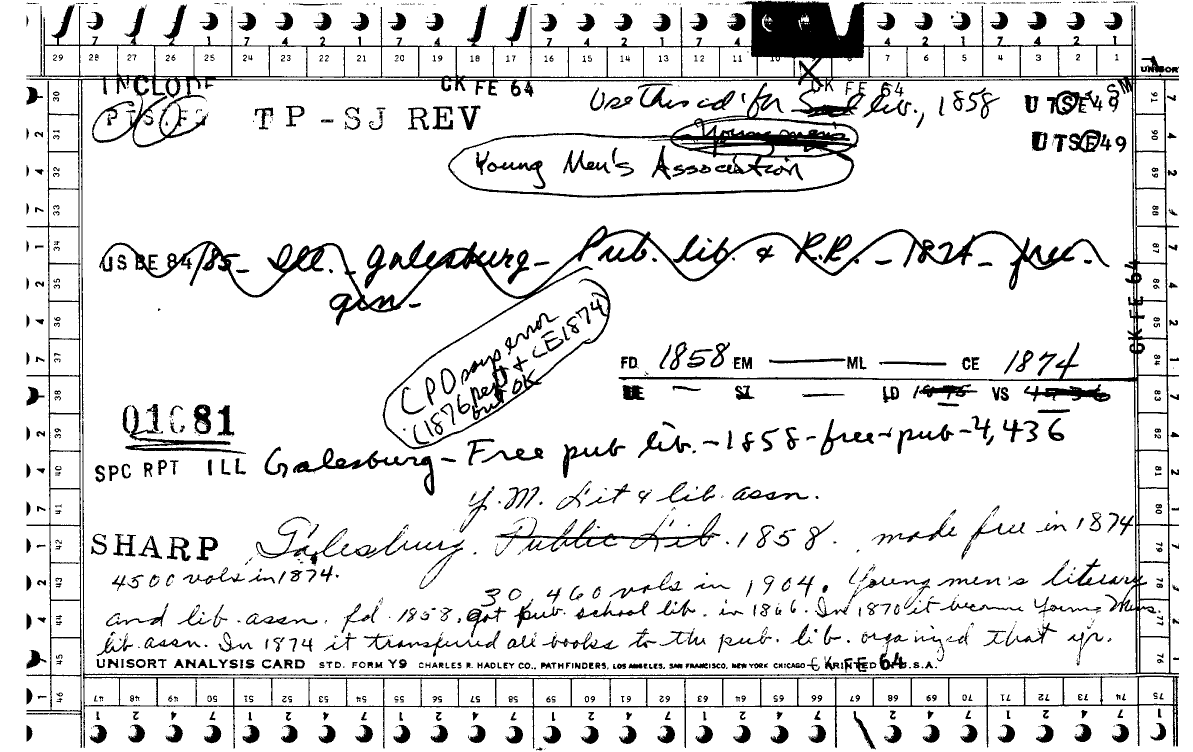 7 4 2 1 7 4 2 1 7 4 2 1 7 4 2 1 7 4 2 1
29 28 27 26 25 24 23 22 21 20 19 18 17 16 15 14 13 12 11 10 8 7 6 5 4 3 2 1 UNISORT
INCLUDE CK FE 64 CK FE 64 SM
PTS. TP-SJ REV Use this cd for Scd lib., 1858 UTSEV49
Young men's UTSE49
Young Men's Association
US BE 84/85 - Ill. - Galesburg - Pub. lib. & R.R. - 1874 - free -
gen -
CPO says error
(1876 rept & CE1874)
but OK
CK FE 64
FD 1858 EM — ML — CE 1874
BE — SI — LD 1875 VS 4336
01681
SPC RPT ILL Galesburg - Free pub lib. - 1858 - free - pub - 4,436
Y.M. Lit & lib. assn.
SHARP Galesburg. Public Lib. 1858. made free in 1874
4500 vols in 1874.
30,460 vols in 1904. Young men's literary
and lib. assn. fd. 1858. got pub. school lib. in 1866. In 1870 it became Young Mens
lib. assn. In 1874 it transfered all books to the pub. lib. organized that yr.
UNISORT ANALYSIS CARD STD. FORM Y9 CHARLES R. HADLEY CO., PATHFINDERS, LOS ANGELES, SAN FRANCISCO, NEW YORK CHICAGO PRINTED U.S.A.
CK FE 64
46 47 48 49 50 51 52 53 54 55 56 57 58 59 60 61 62 63 64 65 66 67 68 69 70 71 72 73 74 75